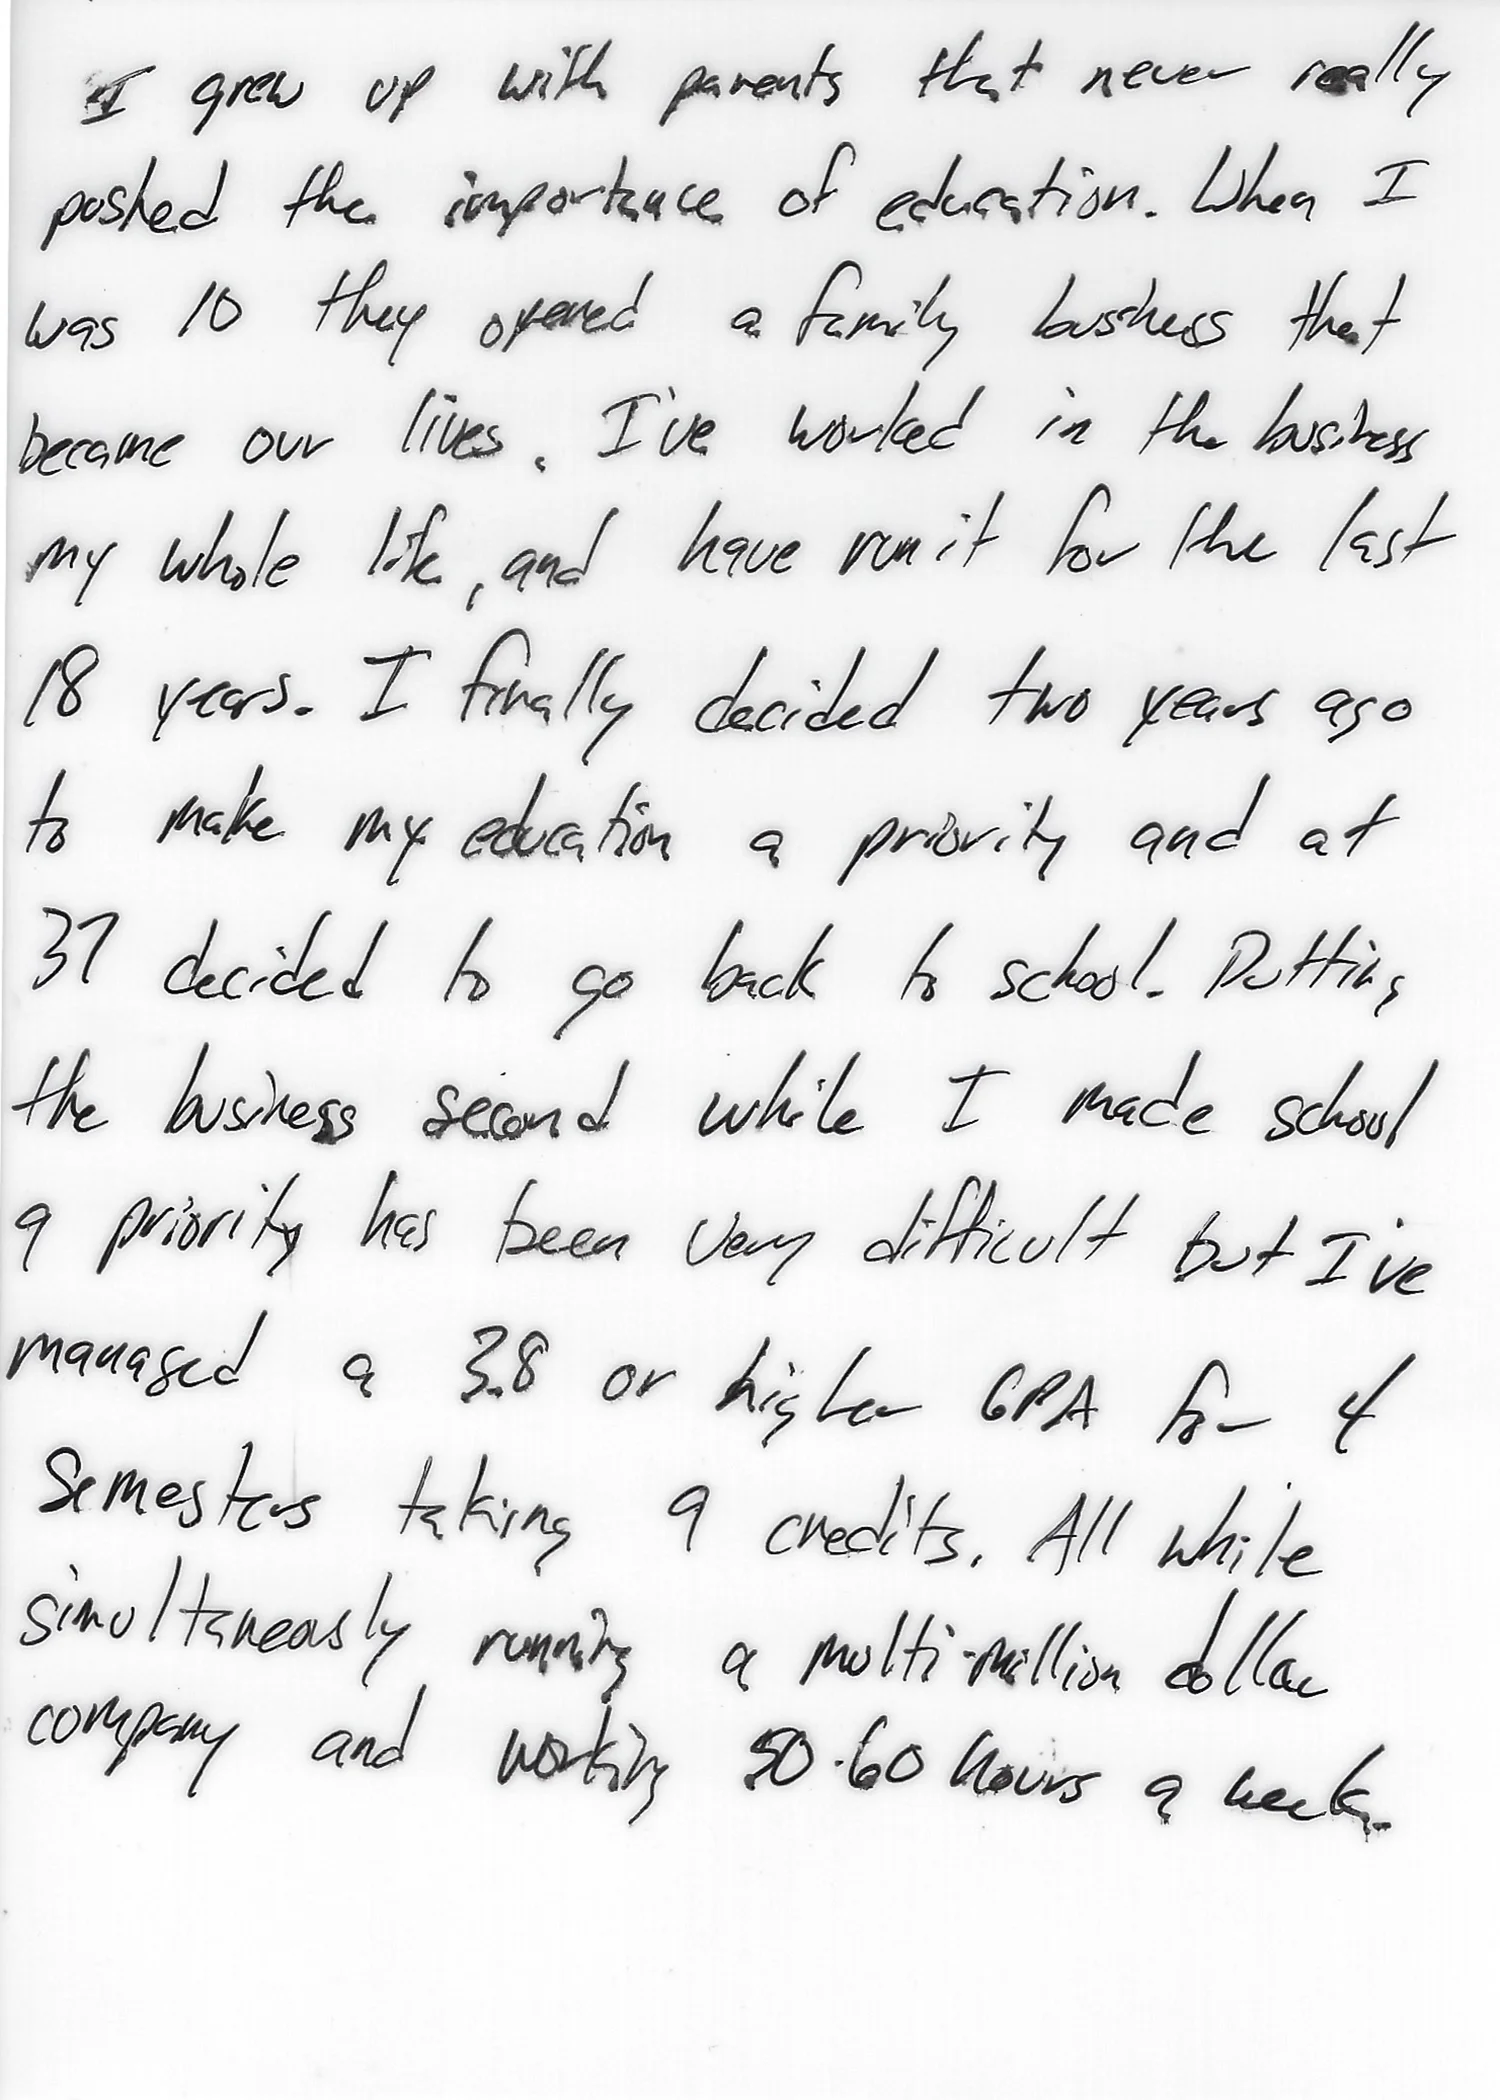 I grew up with parents that never really
pushed the importance of education. When I
was 10 they opened a family business that
became our lives. I've worked in the business
my whole life, and have run it for the last
18 years. I finally decided two years ago
to make my education a priority and at
37 decided to go back to school. Putting
the business second while I made school
a priority has been very difficult but I've
managed a 3.8 or higher GPA for 4
semesters taking 9 credits. All while
simultaneously running a multi-million dollar
company and working 50-60 hours a week.